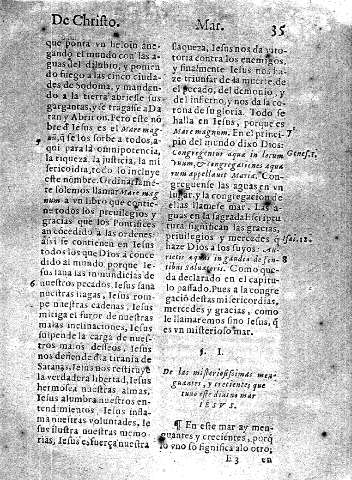 De Christo.
Mar.
35
que ponia vn heroio ane-
gando el mundo con las a-
guas del diluuio, y ponien
do fuego a las cinco ciuda-
des de Sodoma, y mandan-
do a la tierra abriesse sus
gargantas, y se tragasse a Da
tan y Abiron. Pero este nō
bre de Iesus es el Mare mag
num, q̃ se los sorbe a todos, a-
qui para la omnipotencia,
la riqueza, la justicia, la mi
sericordia, todo lo incluye
este nombre. Ordinariame
te solemos llamar Mare mag
num a vn libro que contie-
ne todos los preuilegios y
gracias que los Pontifices
an cocedido a las ordenes:
assi se contienen en Iesus
todos los que Dios a conce
dido al mundo, porque Ie-
sus sana las inmundicias de
6
nuestros pecados. Iesus sana
nuestras llagas, Iesus rom-
pe nuestras cadenas, Iesus
mitiga el furor de nuestras
malas inclinaciones, Iesus
suspende la carga de nues-
tros malos desseos, Iesus
nos defiende de la tirania de
Satanas, Iesus nos restituye
la verdadera libertad, Iesus
hermosea nuestras almas,
Iesus alumbra nuestros en-
tendimientos, Iesus infla-
ma nuestras voluntades, Ie
sus ilustra nuestras memo-
rias, Iesus esfuerça nuestra
flaqueza, Iesus nos da vito-
toria contra los enemigos,
y finalmente Iesus nos ha-
ze triunfar de la muerte, de
el pecado, del demonio, y
del infierno, y nos da la co-
rona de su gloria. Todo se
halla en Iesus, porque es
7
Mare magnum. En el princi-
pio del mundo dixo Dios:
Congregentur aquæ in locum
Genes. 1.
vnum, & congregationes aqua
rum appellauit Maria. Con-
greguense las aguas en vn
lugar, y la congregacion de
ellas llamese mar. Las a-
guas en la sagrada Escrip-
tura significan las gracias,
priuilegios y mercedes q̃
Isai. 12.
haze Dios à los suyos: Au-
8
rietis aquas in gaudio de fon-
tibus Saluatoris. Como que-
da declarado en el capitu-
lo passado. Pues a la congre
gació destas misericordias,
mercedes y gracias, como
le llamaremos sino Iesus, q̃
es vn misterioso mar.
§. I.
De las misteriosissimas men-
guantes, y crecientes que
tuuo este diuino mar
IESVS.
¶ En este mar ay men-
guantes y crecientes, porq̃
lo vno so significa alo otro,
E 3
en